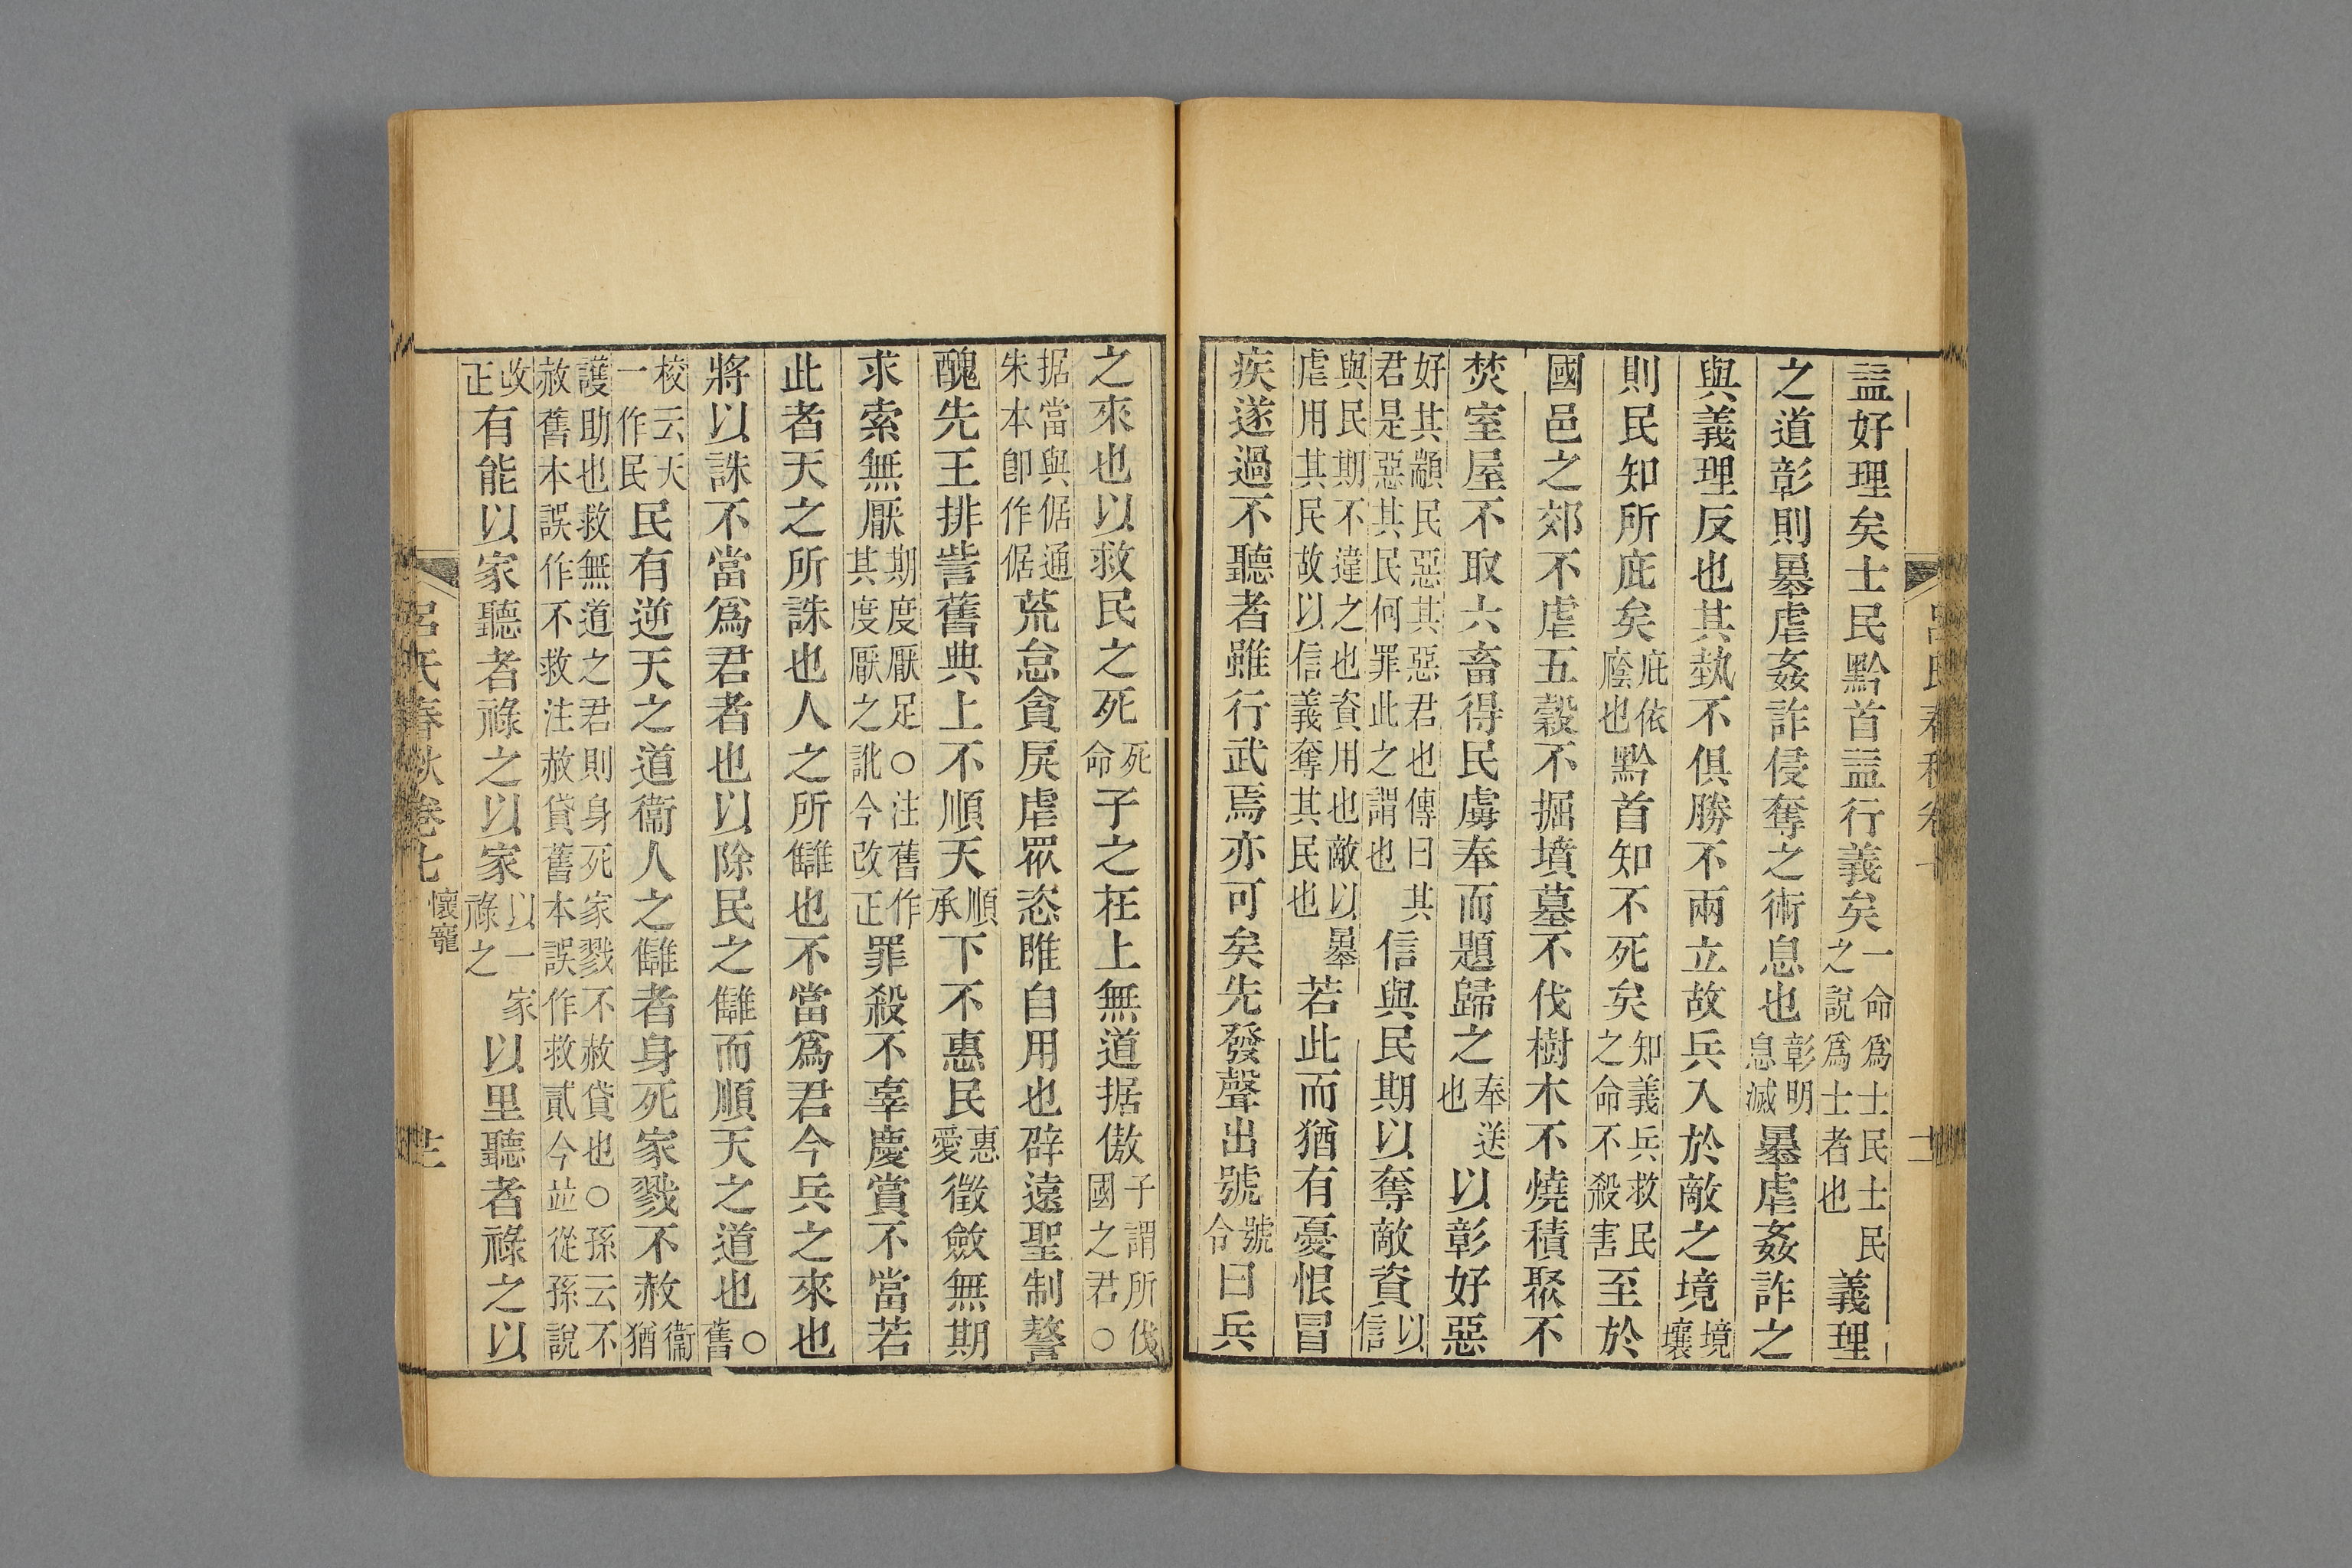 益好理矣士民黔首益行義矣一命爲士民士民之說爲士者也義理
之道彰則暴虐姦詐侵奪之術息也彰明息滅暴虐姦詐之
與義理反也其埶不俱勝不兩立故兵入於敵之境境壤
則民知所庇矣庇依廕也黔首知不死矣知義兵救民之命不殺害至於
國邑之郊不虐五穀不掘墳墓不伐樹木不燒積聚不
焚室屋不取六畜得民虜奉而題歸之奉送也以彰好惡
好其顓民惡其惡君也傳曰其君是惡其民何罪此之謂也信與民期以奪敵資以信
與民期不違之也資用也敵以暴虐用其民故以信義奪其民也若此而猶有憂恨冒
疾遂過不聽者雖行武焉亦可矣先發聲出號號令曰兵
之來也以救民之死死命子之在上無道据傲子謂所伐國之君○
据當與倨通朱本卽作倨荒怠貪戾虐眾恣睢自用也辟遠聖制謷
醜先王排訾舊典上不順天順承下不惠民惠愛徵斂無期
求索無厭期度厭足○注舊作其度厭之訛今改正罪殺不辜慶賞不當若
此者天之所誅也人之所讎也不當爲君今兵之來也
將以誅不當爲君者也以除民之讎而順天之道也○舊
校云天一作民民有逆天之道衞人之讎者身死家戮不赦衞猶
護助也救無道之君則身死家戮不赦貸也○孫云不赦舊本誤作不救注赦貸舊本誤作救貳今並從孫說
改正有能以家聽者祿之以家以一家祿之以里聽者祿之以
呂氏春秋卷七 懷寵